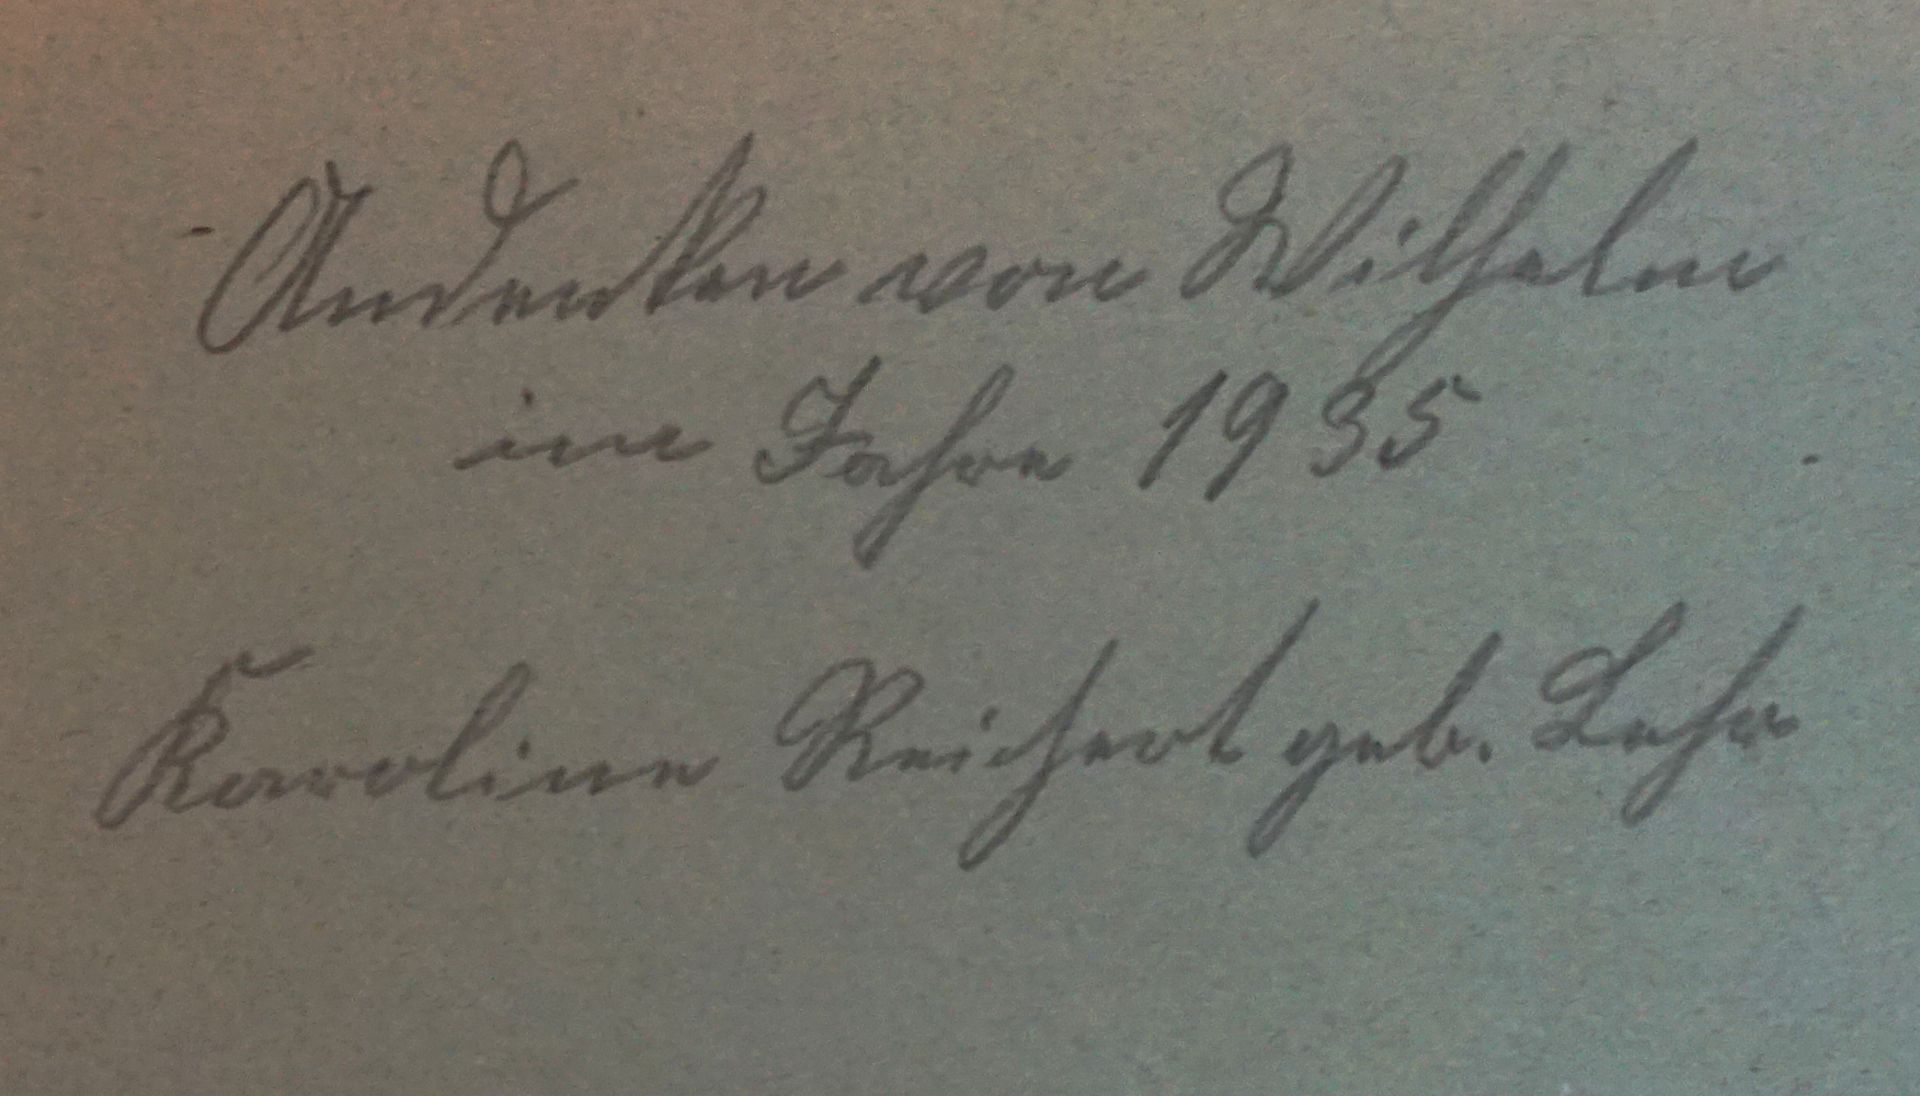 Andenken von Wilhelm
im Jahre 1935
Karoline Reichert geb. Lehr